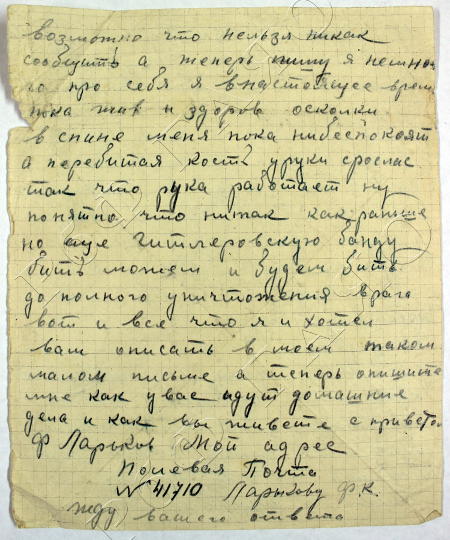 возможно что нельзя никак
сообщить а теперь пишу я немно
го про себя я внастоящее врем
пока жив и здоров осколки
в спине меня пока нибеспокоят
а перебитая кость уруки срослас
так что рука работает ну
понятно что нитак как раньше
но еще гитлеровскую банду
бить можем и будем бить
до полного уничтожения врага
вот и все что я и хотел
вам описать в моем таком
малом письме а теперь опишите
мне как увас идут домашние
дела и как вы живете с приветом
Ф Ларьков Мой адрес
Полевая Почта
№ 41710 Ларькову Ф.К.
жду вашего ответа